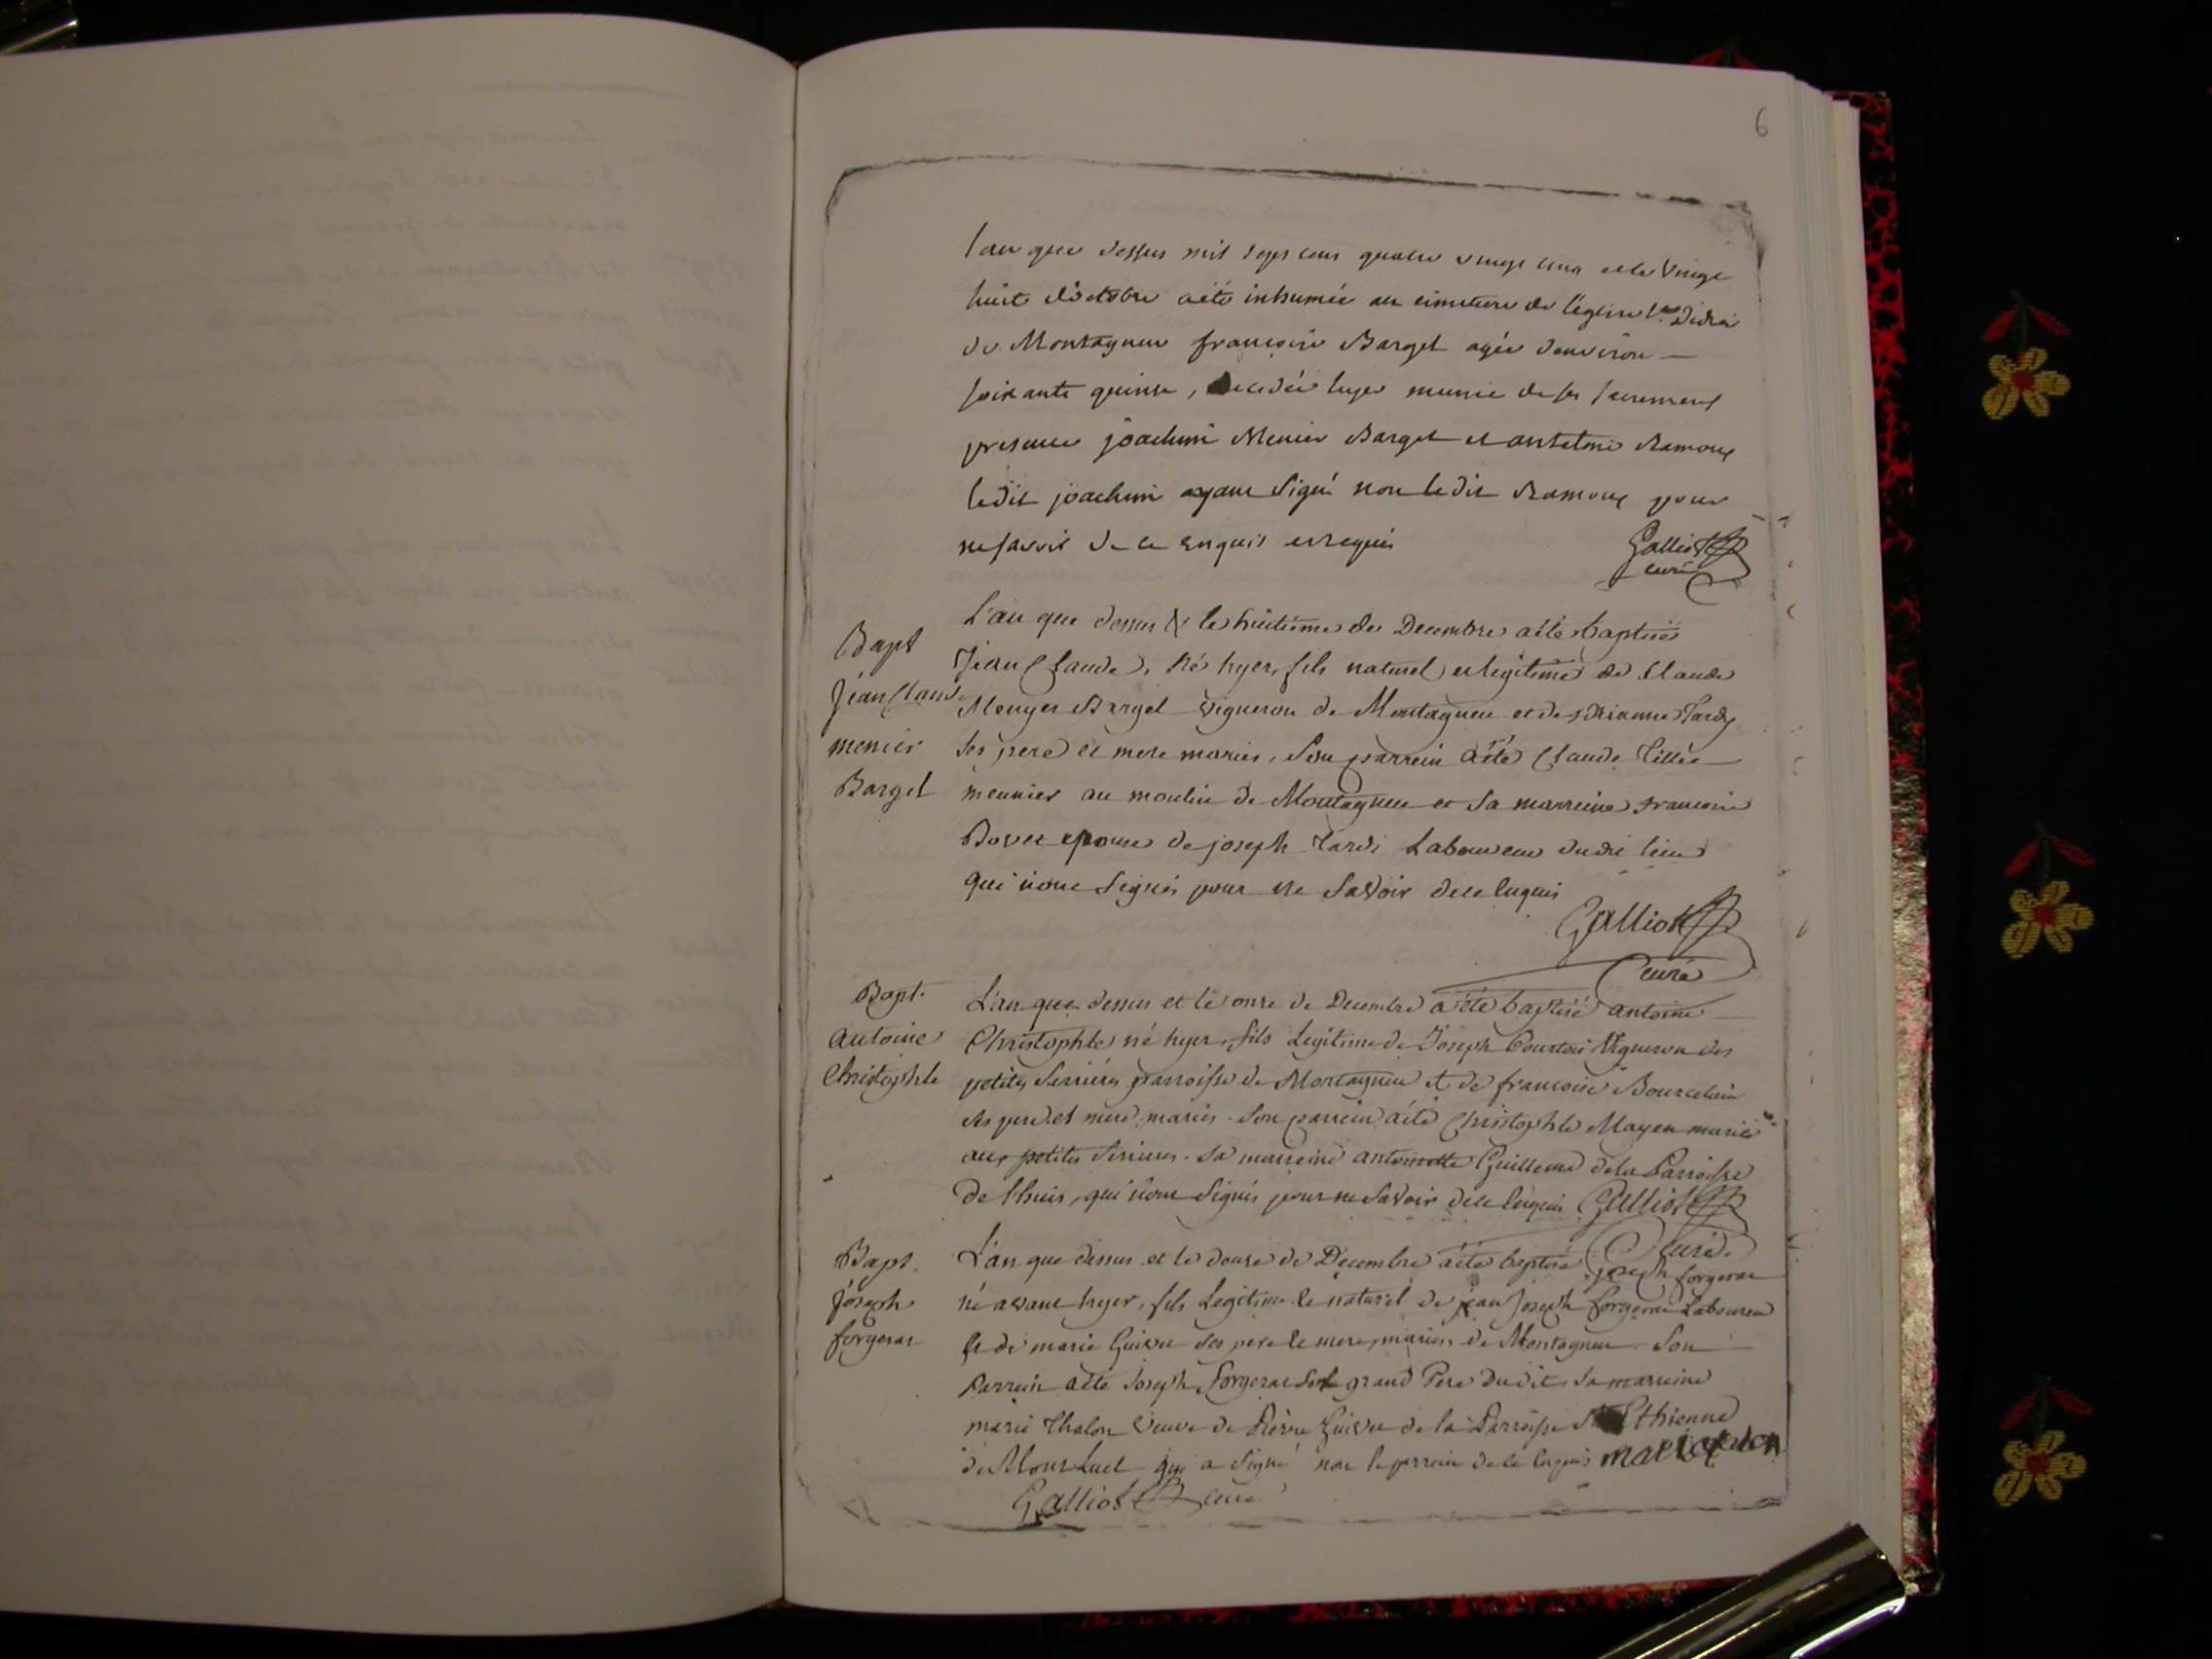 6
l'an que dessus mil sept cent quatre vingt cinq et le vingt
huit d'octobre a été inhumée au cimetiere de l'église St Didier
de Montagneu françoise Barget agée d'environ
soixante quinse, decedée hyer munie de ses sacrements
presence joachim Menier Barget et antelme Ramoux
ledit joachim ayant signé non le dit Ramoux pour
ne savoir de ce enquis et requis
Galliot
curé
Bapt
Jean Claude
menier
Barget
L'an que dessus & le huitieme de Decembre a été baptisé
Jean Claude, né hyer, fils naturel et legitime de Claude
Menyer Barget vigneron de Montagneu et de Tardy
ses pere et mere mariés, son parrein a été Claude Tillet
meunier au moulin de Montagneu et sa marreine francoise
Bovet epouse de joseph Tardi Laboureur dudit lieu
qui n'ont signés pour ne savoir de ce enquis
Galliot
Curé
Bapt.
Antoine
Christophle
L'an que dessus et le onze de Decembre a été baptisé antoine
Christophle né hyer, fils Legitime de Joseph Courtois Vigneron des
petites Serriéres parroisse de Montagneu et de francoise
ses pere et mere mariés. Son parrein a été Christophle Mayen
aux petites Serrieres. sa marreine antoinette Guilleme de la Parroisse
de lhuis, qui n'ont signés pour ne savoir de ce enquis Galliot
Curé.
Bapt.
joseph
forgerat
L'an que dessus et le douze de Décembre a été baptisé joseph forgerat
né avant hyer, fils Legitime & naturel de jean Joseph forgerat Laboureur
& de marie Guivu ses pere & mere, mariés de Montagneu. Son
Parrein a été Joseph forgerat grand Pere dudit, sa marreine
marie Thalon veuve de Pierre Guivu de la Parroisse St Ethienne
de qui a signé non le parrein de ce enquis
Galliot curé